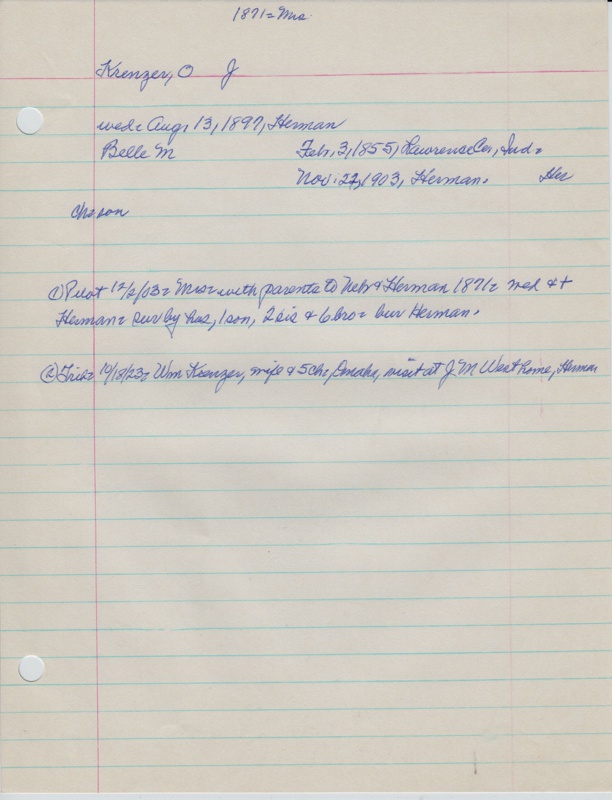 1871= Mrs.
Krenzer, O J
wed= Aug, 13, 1897, Herman
Belle M Feb, 3, 1855, Lawrence Co, Ind=
Nov. 22, 1903, Herman. Her
ch= son
① Pilot 12/2/03= Mrs= with parents to Nebr & Herman 1871= wed &
Herman= sur by hus, 1 son, 2 sis & 6 bro= bur Herman.
② 10/18/23= Wm Krenzer, wife & 5 ch, Omaha, visit at J M West home, Herman